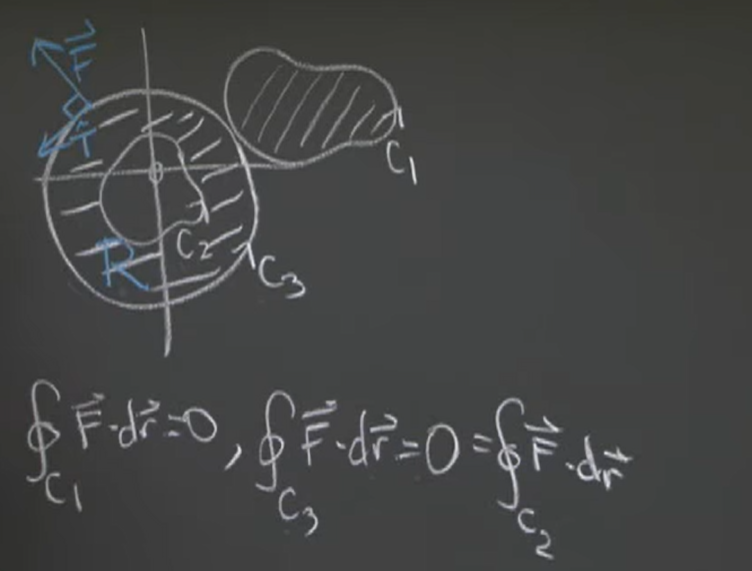 F⃗
T̂
C₁
C₂
R
C₃
∮_C₁ F⃗·dr⃗=0, ∮_C₃ F⃗·dr⃗=0=∮_C₂ F⃗·dr⃗